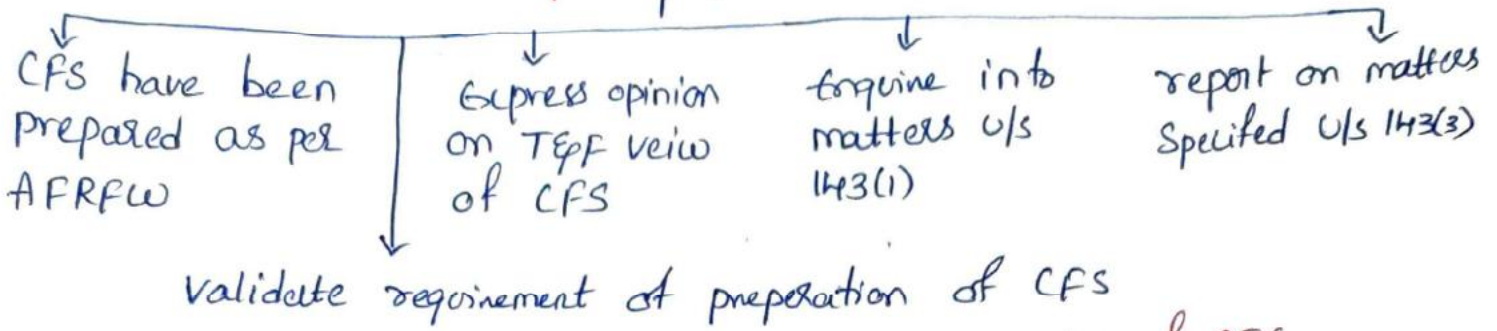 CFS have been
prepared as per
AFRFW
Express opinion
on T&F veiw
of CFS
Enquire into
matters u/s
143(1)
report on matters
Specifed u/s 143(3)
Validate requirement of preperation of CFS